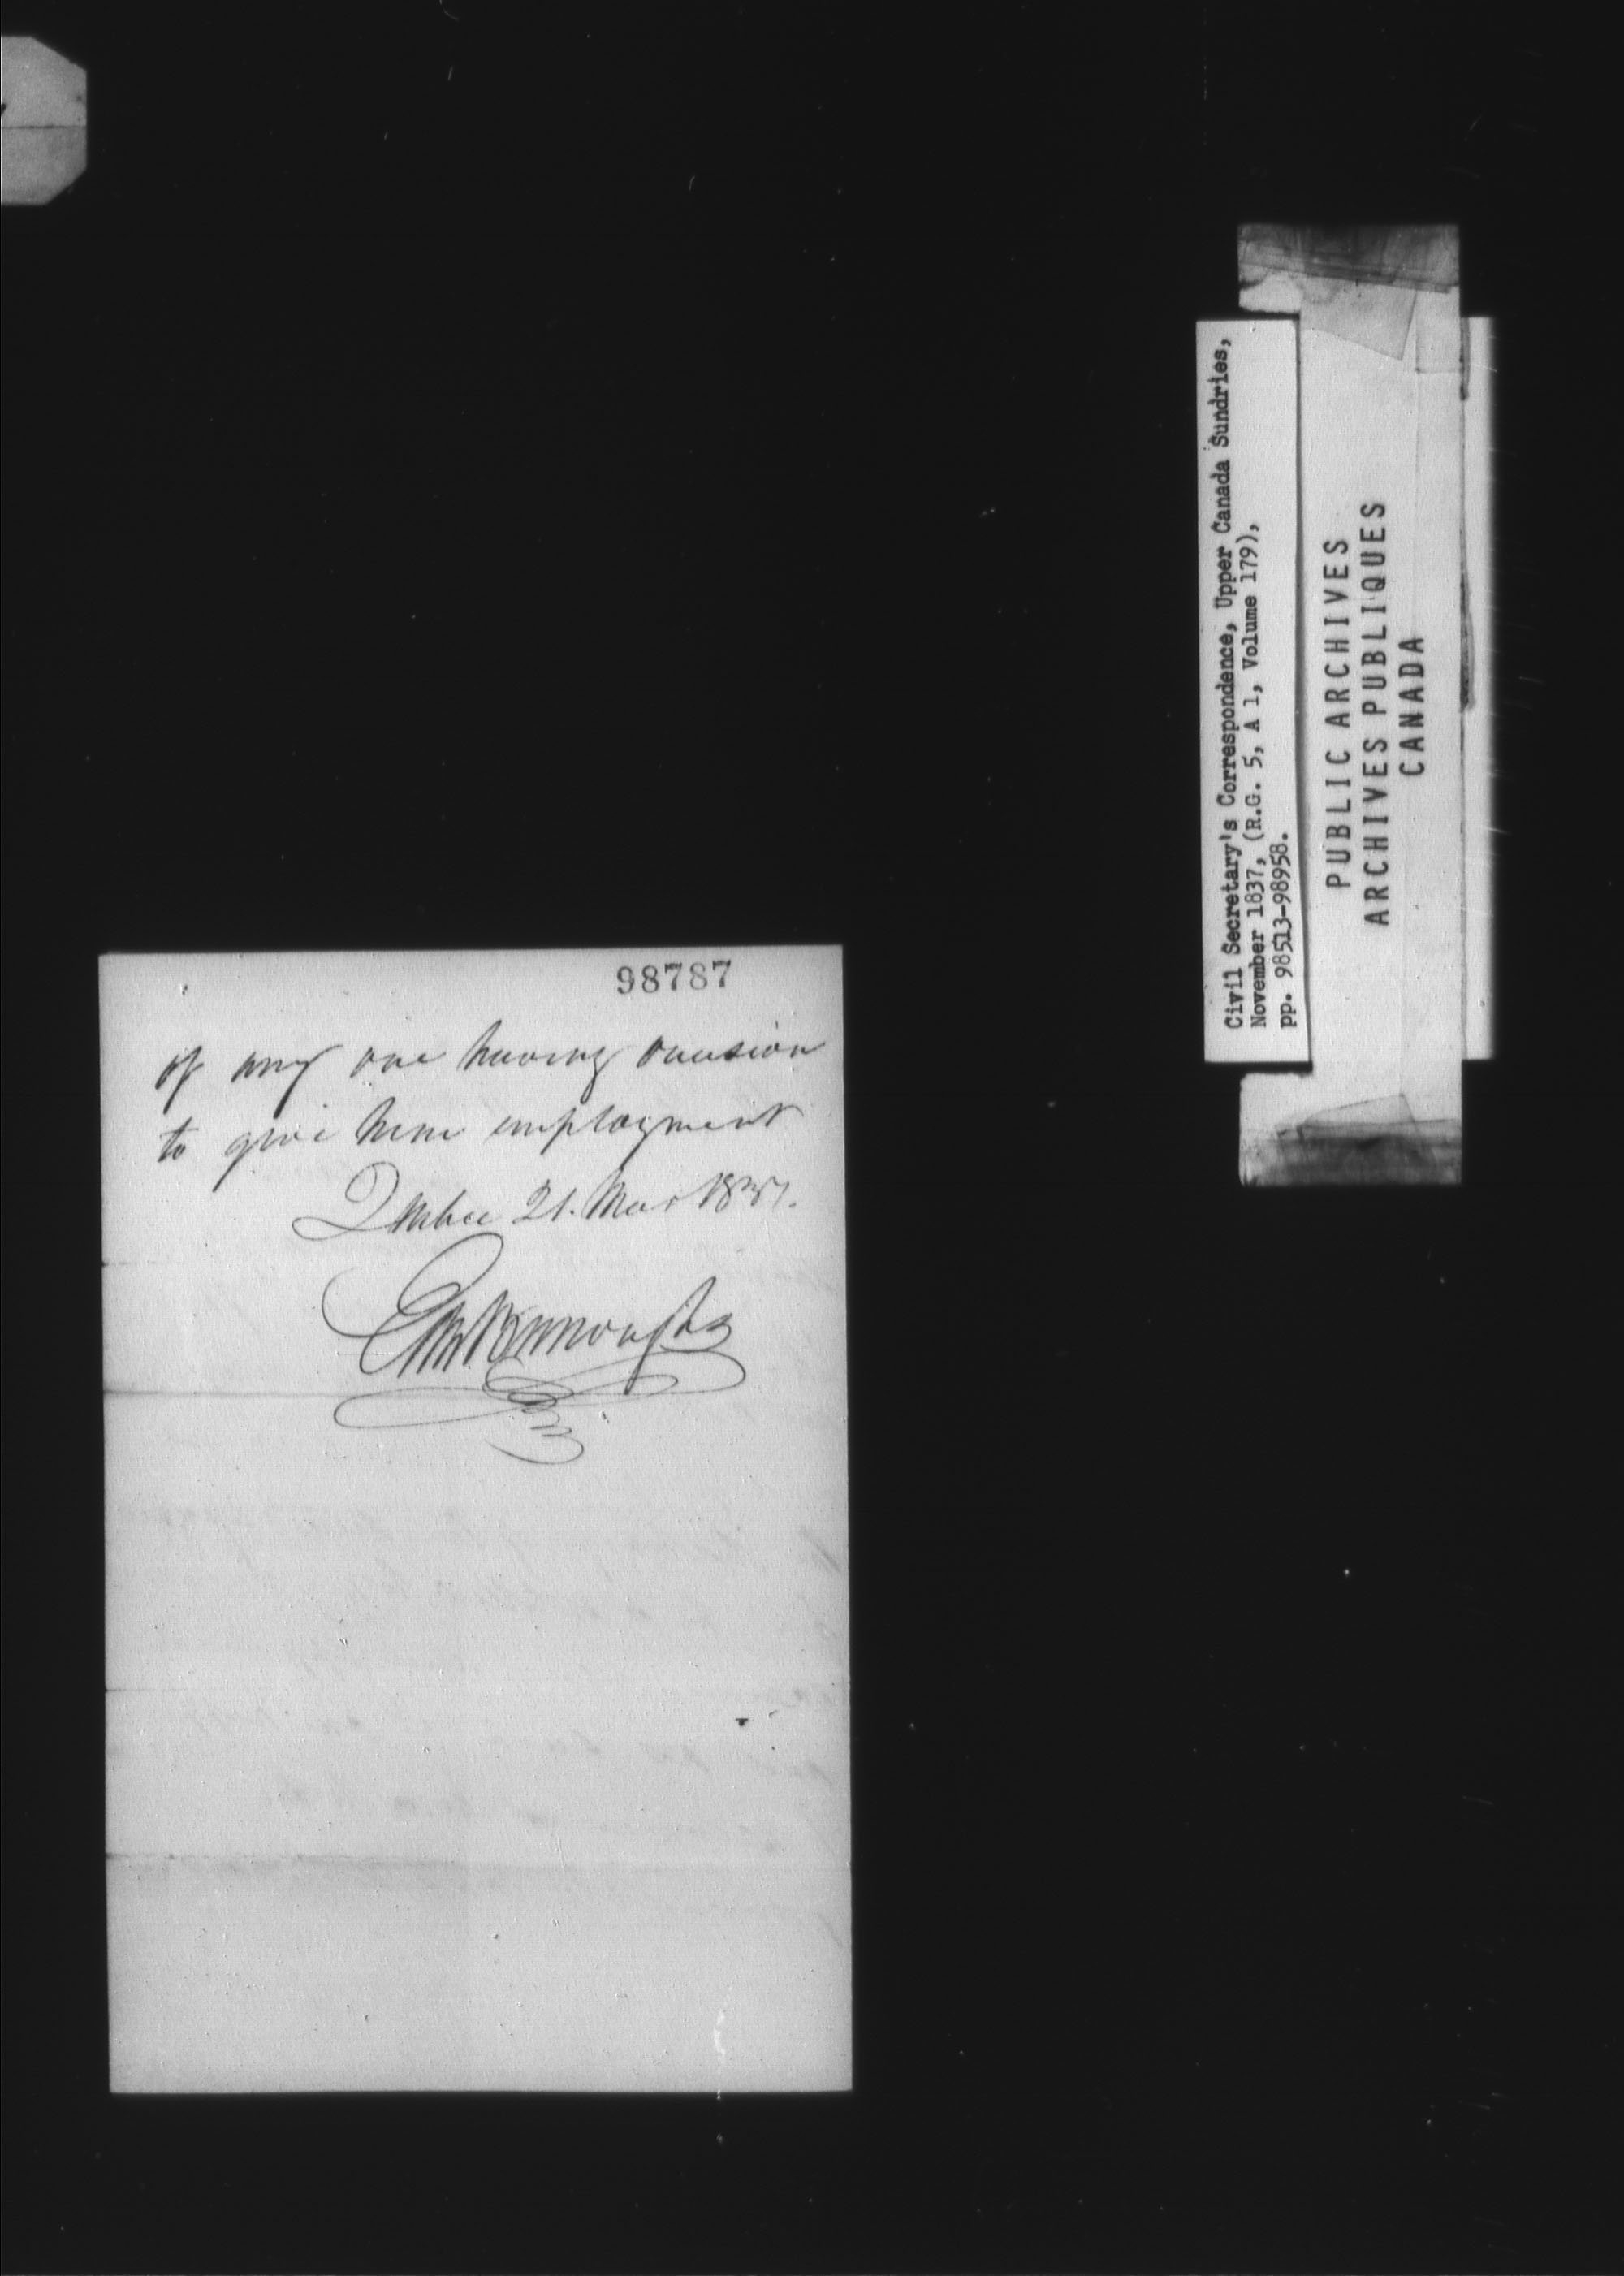 98787
of any one having occasion
to give him employment
Quebec 21. Mar 1837.
Civil Secretary's Correspondence, Upper Canada Sundries,
November 1837, (R.G. 5, A 1, Volume 179),
pp. 98513-98958.
PUBLIC ARCHIVES
ARCHIVES PUBLIQUES
CANADA